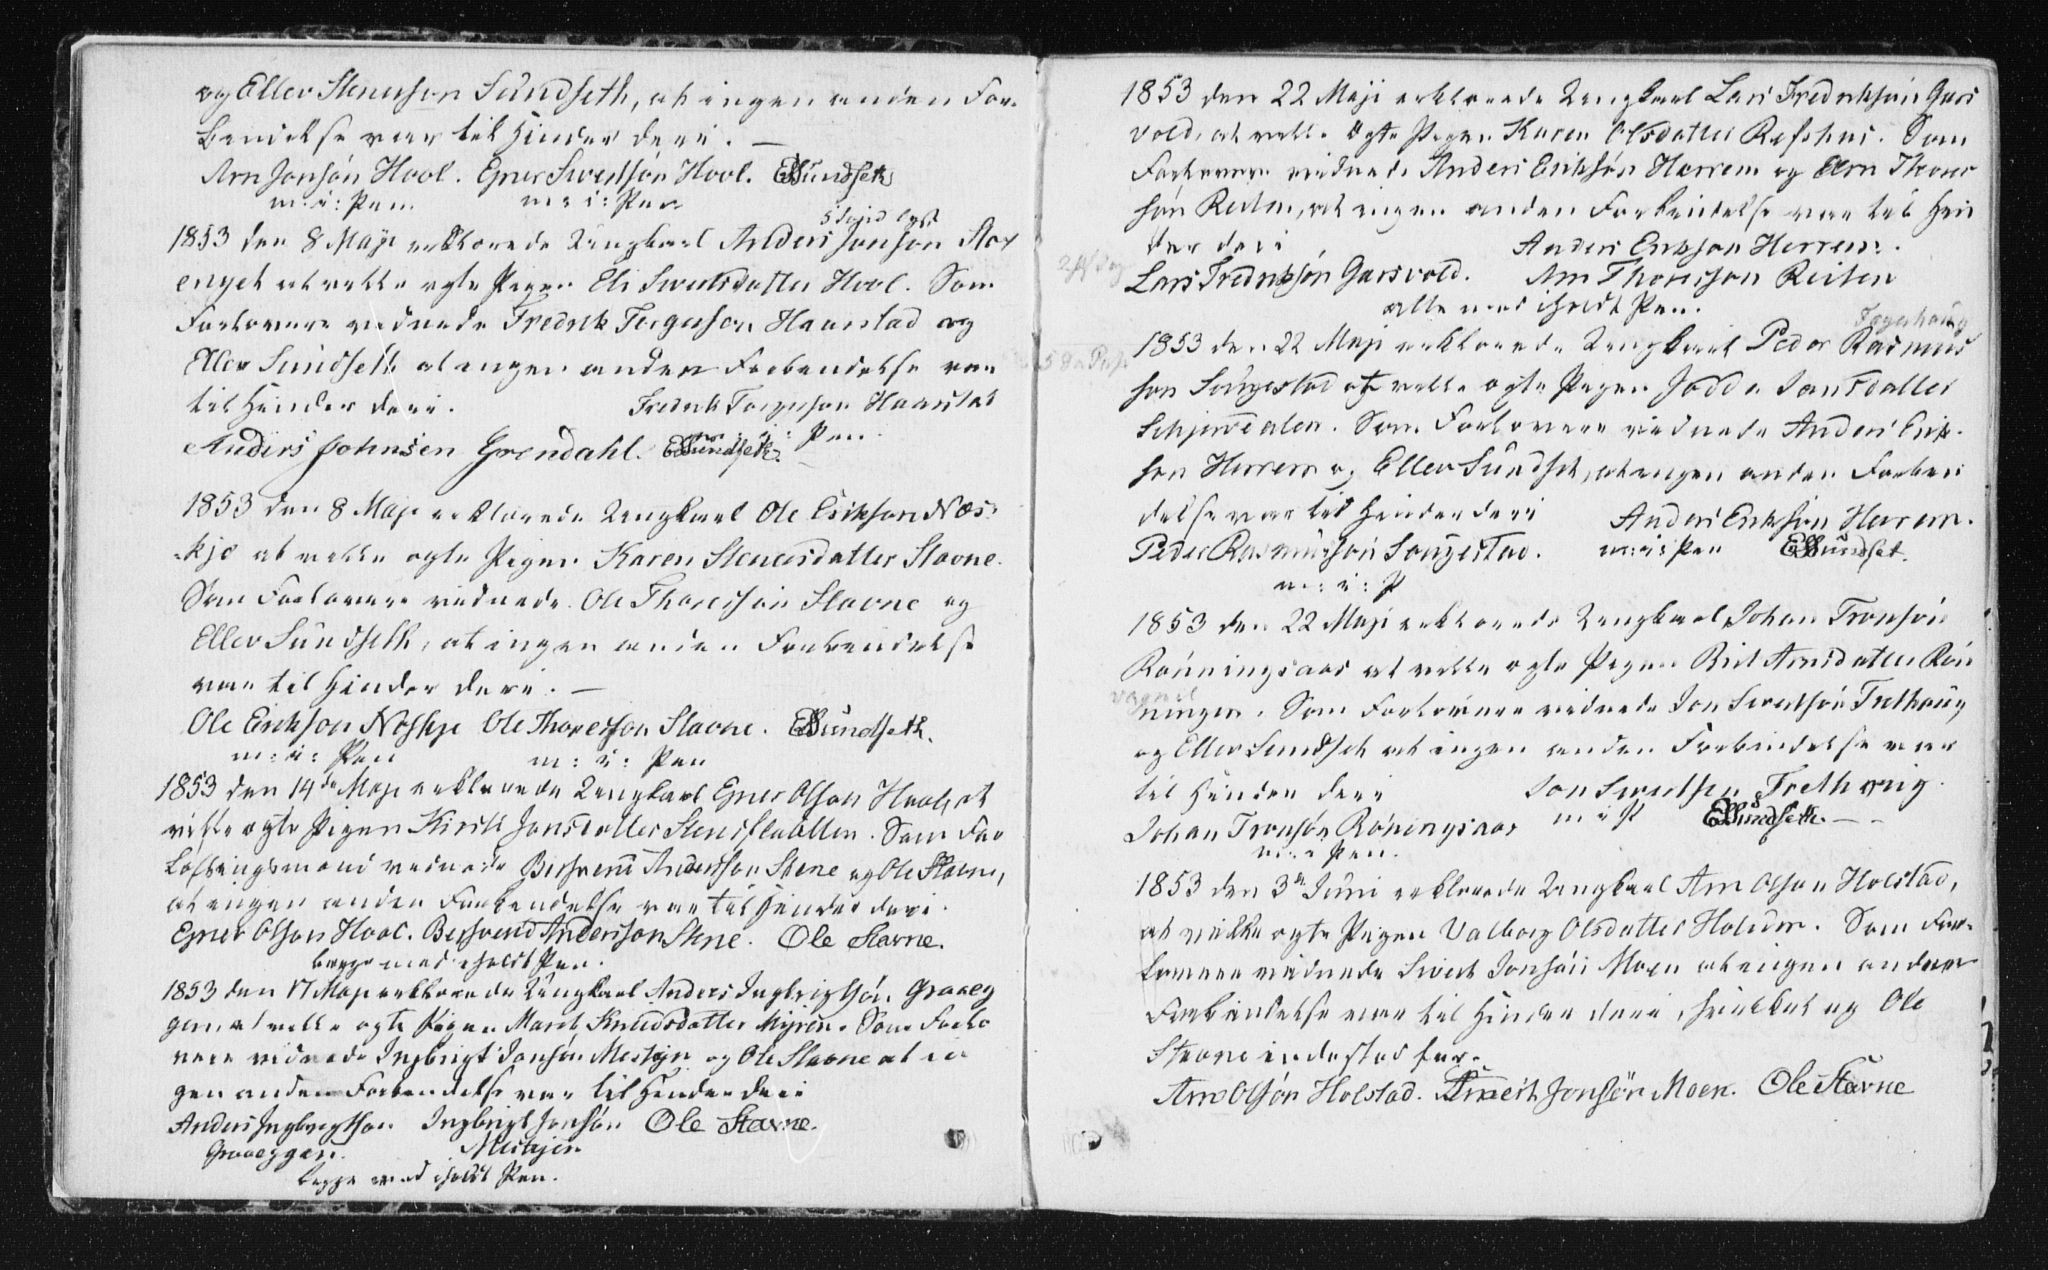 og Ellev Stenerson Sundseth, at ingen anden For-
bendelse var til Hinder deri. —
Arn Jonsón Hool. Egner Swendsón Hool. ESundseth
m: i: Pen. m: i: Pen
1853 den 8 Maji erklærede Ungkarl Anders Jonsón
enget at ville egte Pigen Eli Swendsdatter Hool. Som
Forlovere vidnede Fredrik Torgerson Haarstad og
Ellev Sundseth at ingen anden Forbendelse var
til Hinder deri. Fredrik Torgerson Haarstad
m: i: Pen.
Anders Johnsen Grendahl. ESundseth.
1853 den 8 Maji erklærede Ungkarl Ole Erikson Næs-
kje at ville egte Pigen Karen Stenersdatter Stavne.
Som Forlovere vidnede Ole Thoresón Stavne og
Ellev Sundseth, at ingen anden Forbendelse
var til Hinder deri. —
Ole Erikson Noskje Ole Thoreson Stavne. ESundseth.
m: i: Pen m: i: Pen
1853 den 14de Maji erklærede Ungkarl Egner Olson Hool, at
ville egte Pigen Kirsti Jonsdatter. Som For
lofningsmænd vidnede Bersvend Anderson Stene og Ole Stavne,
at ingen anden Forbendelse var til Hinder deri.
Egner Olson Hool. Bersvend Anderson Stene. Ole Stavne.
begge med iholdt Pen.
1853 den 17 Maji erklærede Ungkarl Anders Ingbrigtsón Graaeg
gen, at ville egte Pigen Marit Knudsdatter Myren. Som Forlo
vere vidnede Ingbrigt Jonsón Mestejen og Ole Stavne at in
gen anden Forbendelse var til Hinder deri
Anders Ingbrigtson Ingbrigt Jonsón Ole Stavne.
Graaeggen. Mestejen
begge med iholdt Pen.
1853 den 22 Maji erklærede Ungkarl Lars Fredriksón Gars
vold, at ville Egte Pigen Karen Olsdatter Refshus. Som
Forlovere vidnede Anders Eriksón Herrem og Arn Thores
són Reiten, at ingen anden Forbindelse var til Hin
der deri Anders Erikson Herrem.
Lars Fredriksón Garsvold. Arn Thoresson Reiten
alle med iholdt Pen.
Fagerhaug
1853 den 22 Maji erklærede Ungkarl Peder Rasmus
son Sougestad at ville egte Pigen Jonsdatter
Schjørdalen. Som Forlovere vidnede Anders Erik-
son Herrem og Ellev Sundset, at ingen anden Forben
delse var til Hinder deri Anders Eriksón Herrem.
Peder Rasmusson Sougestad. m: i: Pen ESundset.
m: i: P
1853 den 22 Maji erklærede Ungkarl Johan Tronsón
Rónningsaas at ville egte Pigen Birt Arnsdatter Rón
ningen. Som Forlovere vidnede Jon Swendsón Frethaug
og Ellev Sundset at ingen anden Forbindelse var
til Hinder deri Jon Swendsen Frethoug.
Johan Tronsón Róningsaas m i P ESundseth. —
m: i Pen.
1853 den 3de Juni erklærede Ungkarl Arn Olson Holstad,
at vilke egte Pigen Valborg Olsdatter Holum. Som For-
lovere vidnede Swend Jonsón Moen at ingen anden
Forbindelse var til Hinder deri, hvilket og Ole
Stavne indestod for.
Arn Olsón Holstad. Jonsón Moen. Ole Stavne